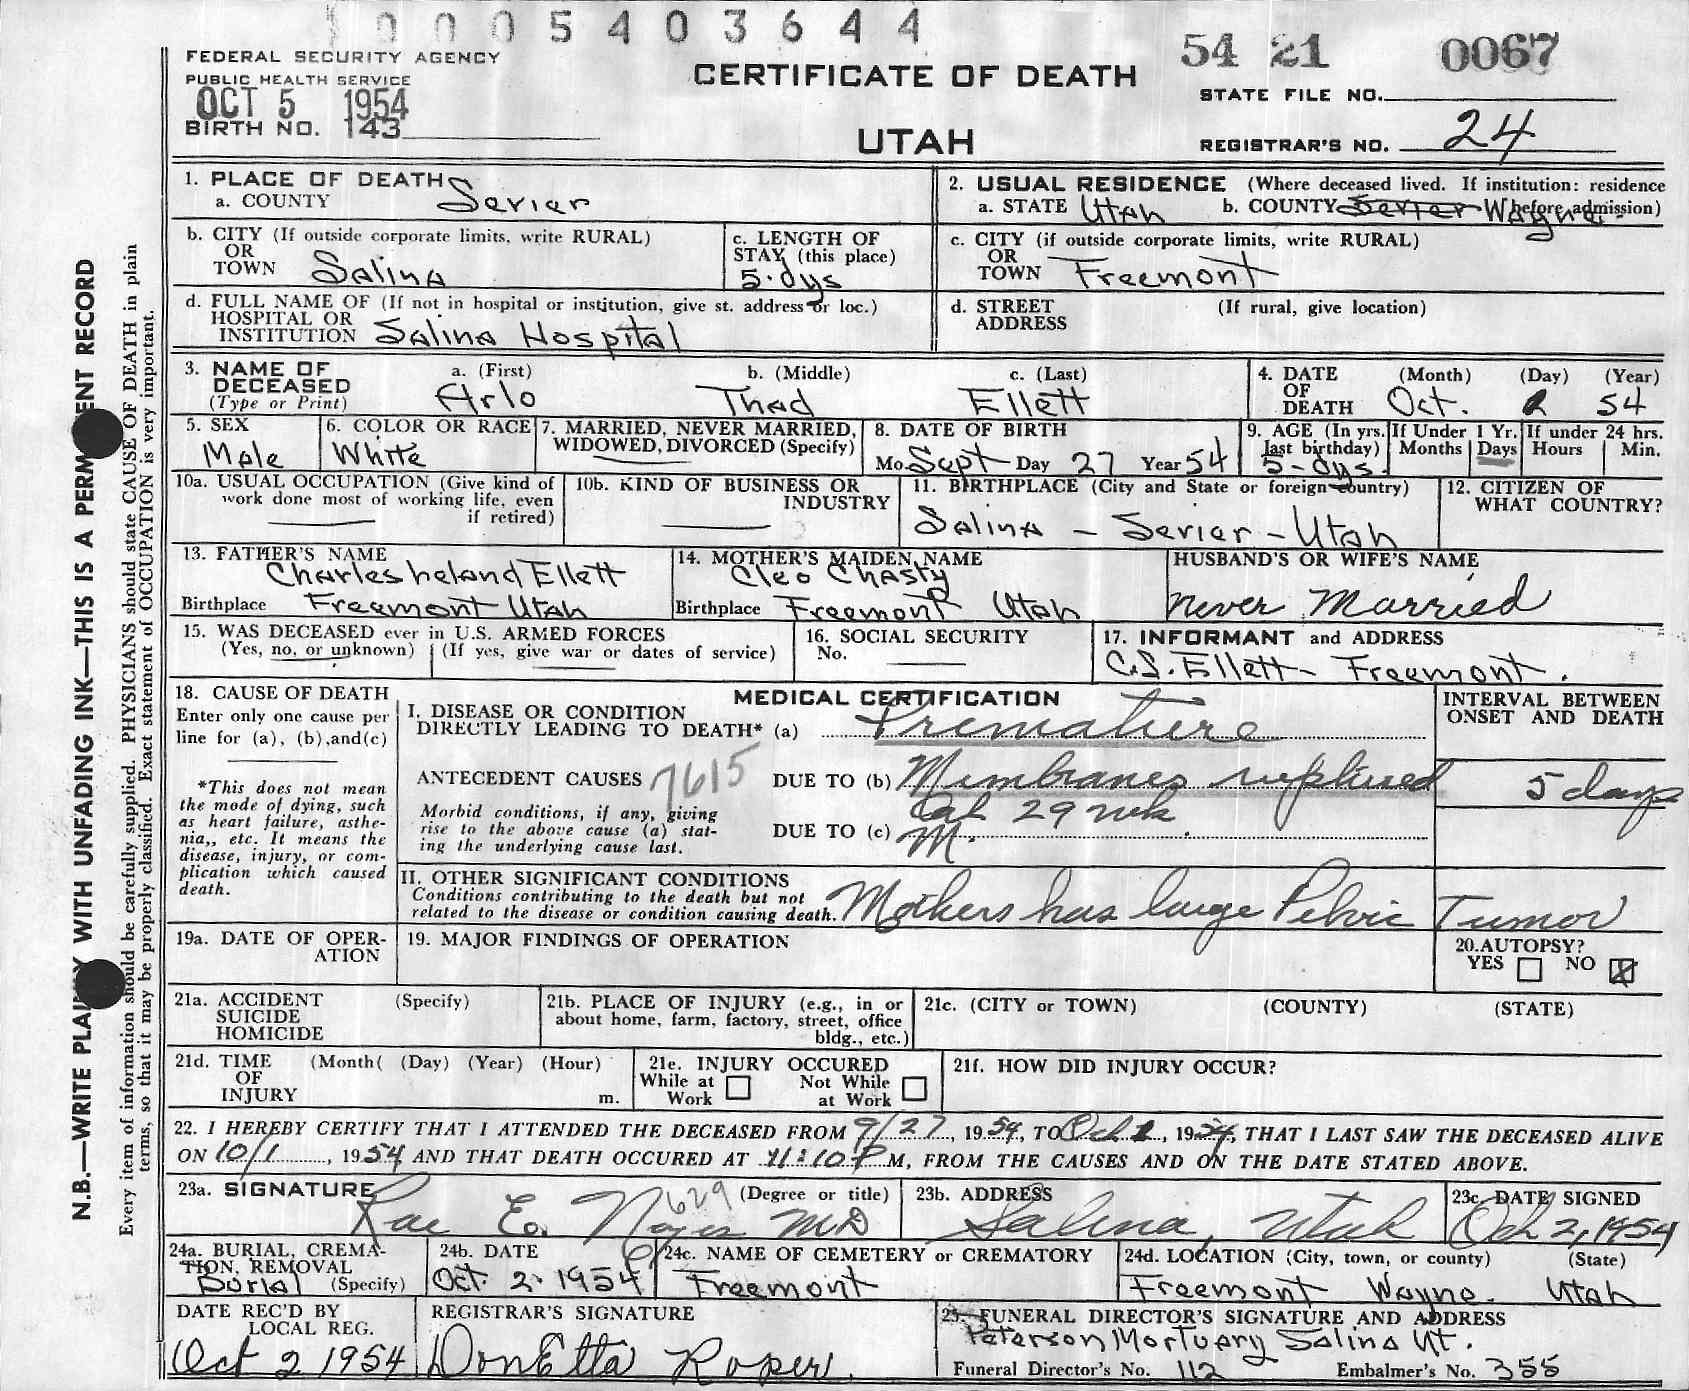 0005403644
FEDERAL SECURITY AGENCY
PUBLIC HEALTH SERVICE
OCT 5 1954
BIRTH NO. 143
CERTIFICATE OF DEATH
UTAH
54 21 0067
STATE FILE NO.
REGISTRAR'S NO. 24
N.B.—WRITE PLAINLY WITH UNFADING INK—THIS IS A PERMANENT RECORD
Every item of information should be carefully supplied. PHYSICIANS should state CAUSE OF DEATH in plain
terms, so that it may be properly classified. Exact statement of OCCUPATION is very important.
1. PLACE OF DEATH
a. COUNTY Sevier
2. USUAL RESIDENCE (Where deceased lived. If institution: residence before admission)
a. STATE Utah b. COUNTY Sevier Wayne
b. CITY (If outside corporate limits, write RURAL)
OR
TOWN Salina
c. LENGTH OF
STAY (this place)
5-dys
c. CITY (if outside corporate limits, write RURAL)
OR
TOWN Freemont
d. FULL NAME OF (If not in hospital or institution, give st. address or loc.)
HOSPITAL OR
INSTITUTION Salina Hospital
d. STREET (If rural, give location)
ADDRESS
3. NAME OF DECEASED
(Type or Print)
a. (First) b. (Middle) c. (Last)
Arlo Thad Ellett
4. DATE OF DEATH (Month) (Day) (Year)
Oct. 54
5. SEX
Male
6. COLOR OR RACE
White
7. MARRIED, NEVER MARRIED,
WIDOWED, DIVORCED (Specify)
8. DATE OF BIRTH
Mo. Sept Day 27 Year 54
9. AGE (In yrs. last birthday)
5-dys.
If Under 1 Yr. Months Days
If under 24 hrs. Hours Min.
10a. USUAL OCCUPATION (Give kind of
work done most of working life, even
if retired)
10b. KIND OF BUSINESS OR
INDUSTRY
11. BIRTHPLACE (City and State or foreign country)
Salina - Sevier - Utah
12. CITIZEN OF
WHAT COUNTRY?
13. FATHER'S NAME
Charles Leland Ellett
Birthplace Freemont Utah
14. MOTHER'S MAIDEN NAME
Cleo Chasty
Birthplace Freemont Utah
HUSBAND'S OR WIFE'S NAME
Never Married
15. WAS DECEASED ever in U.S. ARMED FORCES
(Yes, no, or unknown) (If yes, give war or dates of service)
16. SOCIAL SECURITY
No.
17. INFORMANT and ADDRESS
C.S. Ellett - Freemont.
18. CAUSE OF DEATH
Enter only one cause per
line for (a), (b), and (c)
*This does not mean
the mode of dying, such
as heart failure, asthe-
nia,, etc. It means the
disease, injury, or com-
plication which caused
death.
MEDICAL CERTIFICATION
INTERVAL BETWEEN
ONSET AND DEATH
I. DISEASE OR CONDITION
DIRECTLY LEADING TO DEATH* (a) Premature
ANTECEDENT CAUSES 7615 DUE TO (b) Membranes ruptured 5 days
Morbid conditions, if any, giving
rise to the above cause (a) stat-
ing the underlying cause last.
29 wk
DUE TO (c) M.
II. OTHER SIGNIFICANT CONDITIONS
Conditions contributing to the death but not
related to the disease or condition causing death.
Mothers has large Pelvic Tumor
19a. DATE OF OPER-
ATION
19. MAJOR FINDINGS OF OPERATION
20. AUTOPSY?
YES NO X
21a. ACCIDENT (Specify)
SUICIDE
HOMICIDE
21b. PLACE OF INJURY (e.g., in or
about home, farm, factory, street, office
bldg., etc.)
21c. (CITY or TOWN) (COUNTY) (STATE)
21d. TIME (Month( (Day) (Year) (Hour)
OF
INJURY m.
21e. INJURY OCCURED
While at Work Not While at Work
21f. HOW DID INJURY OCCUR?
22. I HEREBY CERTIFY THAT I ATTENDED THE DECEASED FROM 9/27, 1954, TO Oct 1, 1954, THAT I LAST SAW THE DECEASED ALIVE
ON 10/1, 1954 AND THAT DEATH OCCURED AT 11:10 P M, FROM THE CAUSES AND ON THE DATE STATED ABOVE.
23a. SIGNATURE (Degree or title)
Rae E. Noyes MD
629
23b. ADDRESS
Salina, Utah
23c. DATE SIGNED
Oct 2, 1954
24a. BURIAL, CREMA-
TION, REMOVAL
Burial (Specify)
24b. DATE
Oct. 2. 1954
24c. NAME OF CEMETERY or CREMATORY
Freemont
24d. LOCATION (City, town, or county) (State)
Freemont Wayne. Utah
DATE REC'D BY
LOCAL REG.
Oct 2 1954
REGISTRAR'S SIGNATURE
DonEtta Roper
25. FUNERAL DIRECTOR'S SIGNATURE AND ADDRESS
Peterson Mortuary Salina Ut.
Funeral Director's No. 112 Embalmer's No. 355